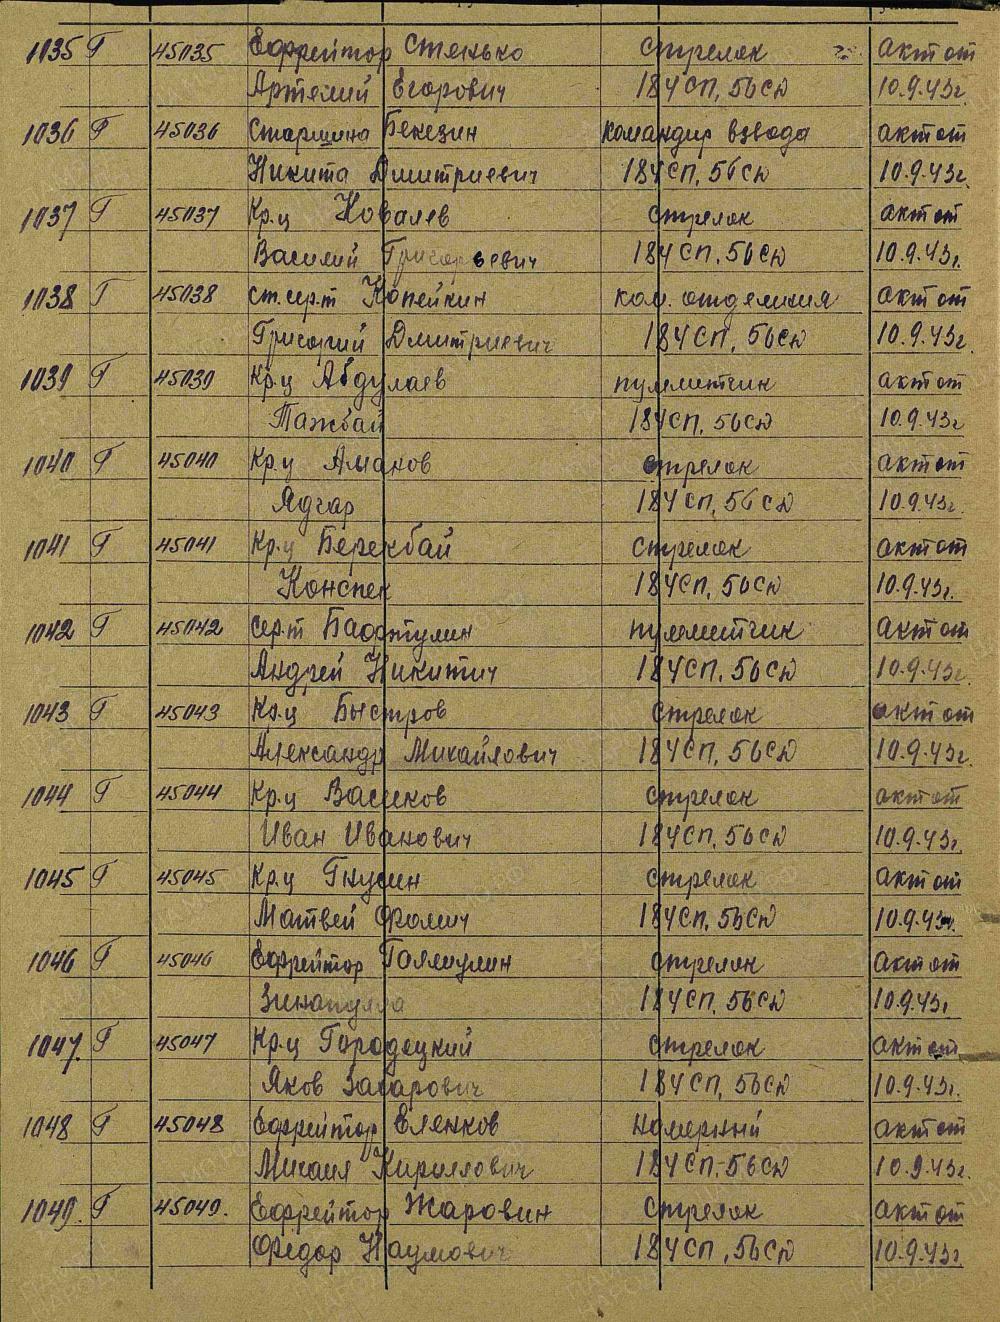 1035 Г 45035 Ефрейтор Стенько стрелок акт от
Артемий Егорович 184 СП, 56 СД 10.9.43г.
1036 Г 45036 Старшина Бекезин командир взвода акт от
Никита Дмитриевич 184 СП, 56 СД 10.9.43г.
1037 Г 45037 Кр.ц Ковалев стрелок акт от
Василий Григорьевич 184 СП, 56 СД 10.9.43г.
1038 Г 45038 ст. сер.т Копейкин ком. отделения акт от
Григорий Дмитриевич 184 СП, 56 СД 10.9.43г.
1039 Г 45039 Кр.ц Абдулаев пулеметчик акт от
Тажбай 184 СП, 56 СД 10.9.43г.
1040 Г 45040 Кр.ц Аманов стрелок акт от
Ядгар 184 СП, 56 СД 10.9.43г.
1041 Г 45041 Кр.ц Берекбай стрелок акт от
Конспек 184 СП, 56 СД 10.9.43г.
1042 Г 45042 сер.т пулеметчик акт от
Андрей Никитич 184 СП, 56 СД 10.9.43г.
1043 Г 45043 Кр.ц Быстров стрелок акт от
Александр Михайлович 184 СП, 56 СД 10.9.43г.
1044 Г 45044 Кр.ц Васиков стрелок акт от
Иван Иванович 184 СП, 56 СД 10.9.43г.
1045 Г 45045 Кр.ц Гнусин стрелок акт от
Матвей Фомич 184 СП, 56 СД 10.9.43г.
1046 Г 45046 Ефрейтор Галмулин стрелок акт от
Зинатулла 184 СП, 56 СД 10.9.43г.
1047. Г 45047 Кр.ц Городецкий стрелок акт от
Яков Захарович 184 СП, 56 СД 10.9.43г.
1048 Г 45048 Ефрейтор Еленков номерный акт от
Михаил Кириллович 184 СП, 56 СД 10.9.43г.
1049. Г 45049. Ефрейтор Жаровин стрелок акт от
Федор Наумович 184 СП, 56 СД 10.9.43г.